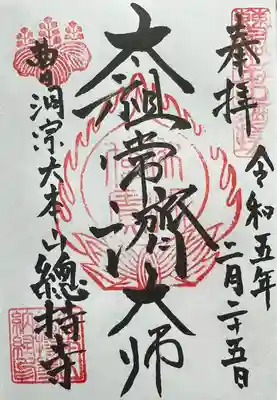 奉拝
令和五年
二月二十五日
太祖常濟大师
曹洞宗大本山總持寺